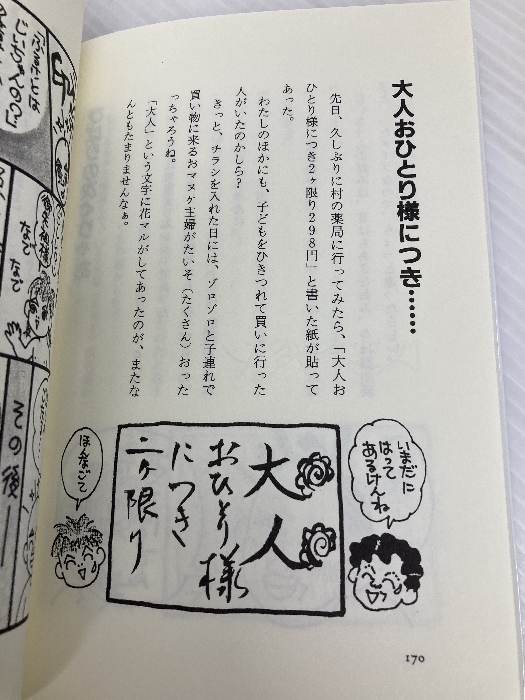 大人おひとり様につき……
先日、久しぶりに村の薬局に行ってみたら、「大人お
ひとり様につき2ヶ限り298円」と書いた紙が貼って
あった。
わたしのほかにも、子どもをひきつれて買いに行った
人がいたのかしら?
きっと、チラシを入れた日には、ゾロゾロと子連れで
買い物に来るおマヌケ主婦がたいそ(たくさん)おった
っちゃろうね。
「大人」という文字に花マルがしてあったのが、またな
んともたまりませんなぁ。
いまだに
はって
あるけんね
大人
おひとり様
につき
二ヶ限り
ほんなごて
170
「ふるさとは
じいちゃんの?」
なで
なで
その後